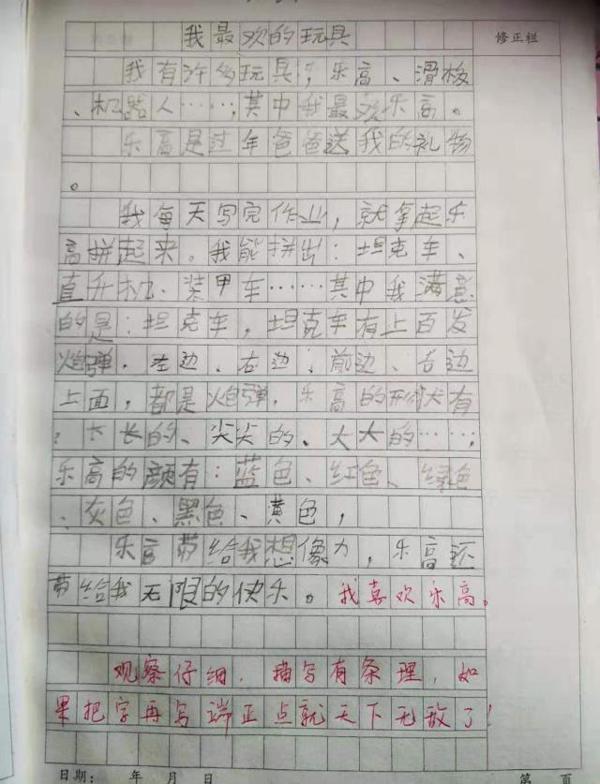 我最欢的玩具
修正栏
我有许多玩具，乐高、滑板
、机器人……，其中我最欢乐高。
乐高是过年爸爸送我的礼物
。
我每天写完作业，就拿起乐
高拼起来。我能拼出：坦克车、
直升机、装甲车……其中我满意
的是：坦克车，坦克车有上百发
炮弹．左边、右边；前边、右边
上面，都是炮弹．乐高的形状有
：长长的、尖尖的、大大的……；
乐高的颜有：蓝色、红色、绿色
、灰色、黑色、黄色，
乐高带给我想像力，乐高还
带给我无限的快乐。我喜欢乐高。
观察仔细．描写有条理，如
果把字再写端正点就天下无敌了！
日期： 年 月 日
第 页